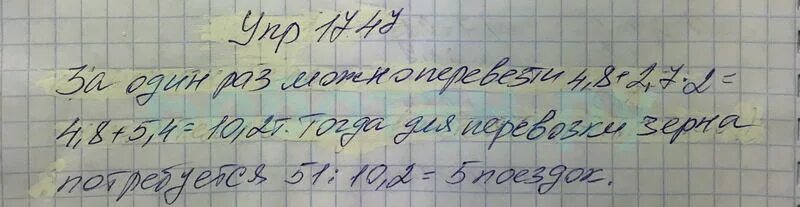 Упр 1747
За один раз можно перевезти 4,8+2,7·2=
4,8+5,4=10,2т. Тогда для перевозки зерна
потребуется 51:10,2=5 поездок.